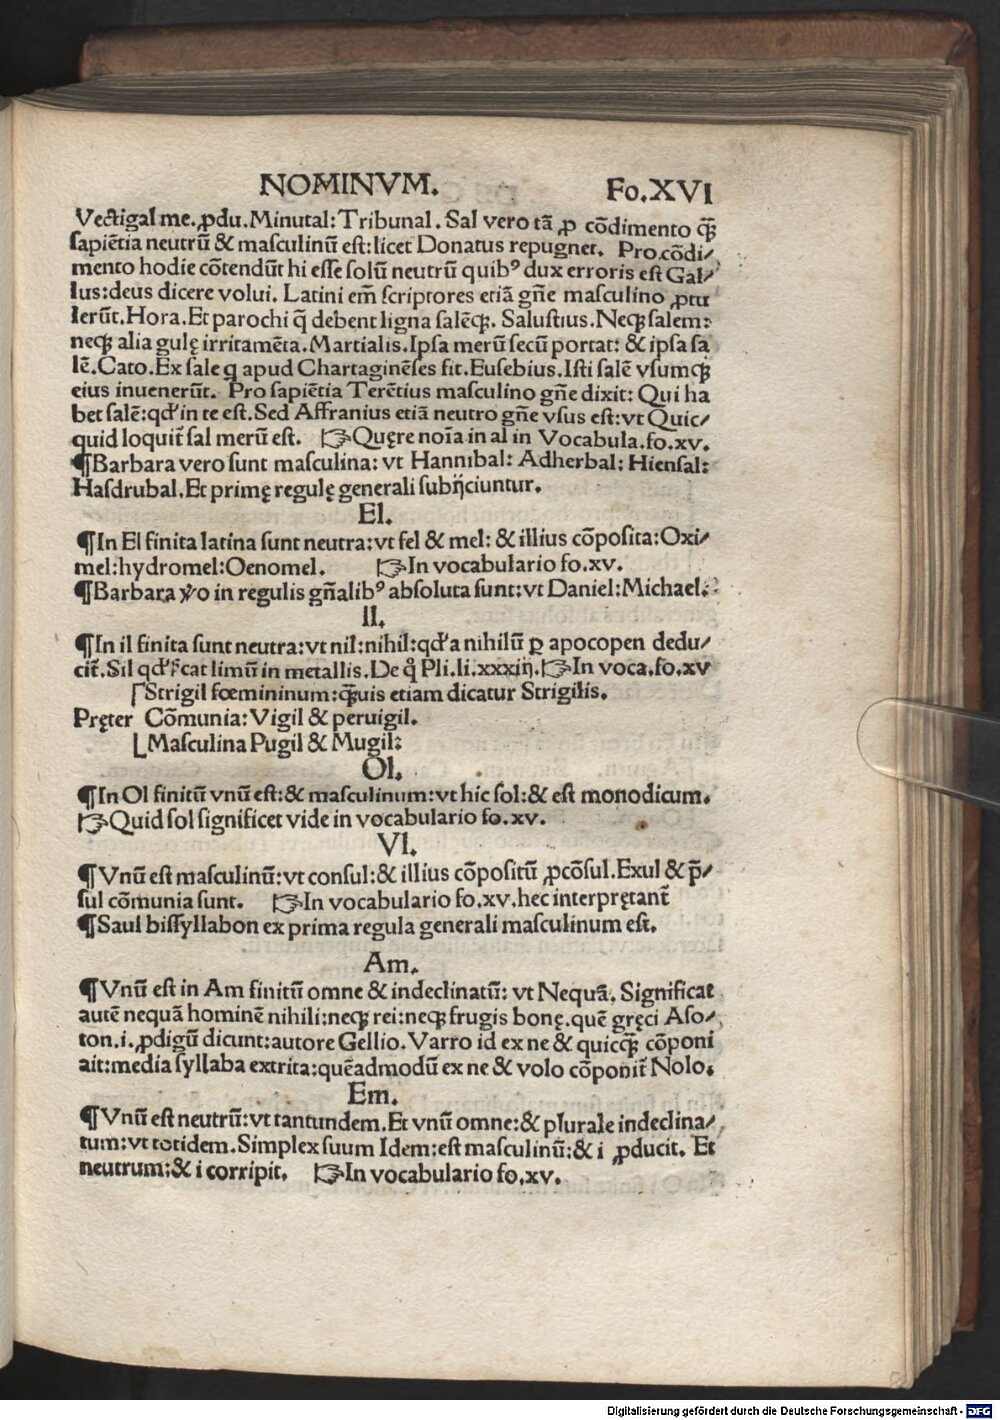 NOMINVM. Fo.XVI
Vectigal me.ꝓdu.Minutal:Tribunal. Sal vero tã ꝓ cõdimento ꝙ̃
sapiẽtia neutrũ & masculinũ est:licet Donatus repugnet. Pro cõdi⸗
mento hodie cõtendũt hi esse solũ neutrũ quibꝰ dux erroris est Gal⸗
lus:deus dicere volui. Latini em̃ scriptores etiã gñe masculino ꝓtu
lerũt.Hora.Et parochi q̃ debent ligna salẽꝙ. Salustius.Neꝙ salem:
neꝙ alia gulę irritamẽta.Martialis.Ipsa merũ secũ portat: & ipsa sa
lẽ. Cato. Ex sale q apud Chartaginẽses fit. Eusebius. Isti salẽ vsumꝙ
eius inuenerũt. Pro sapiẽtia Terẽtius masculino gñe dixit: Qui ha
bet salẽ:qđ in te est. Sed Affranius etiã neutro gñe vsus est:vt Quic⸗
quid loquit᷑ sal merũ est. ☞Quęre noĩa in al in Vocabula.fo.xv.
¶Barbara vero sunt masculina: vt Hannibal: Adherbal: Hiensal:
Hasdrubal.Et primę regulę generali subijciuntur.
El.
¶In El finita latina sunt neutra:vt fel & mel: & illius cõposita:Oxi⸗
mel:hydromel:Oenomel. ☞In vocabulario fo.xv.
¶Barbara ꝟo in regulis gñalibꝰ absoluta sunt:vt Daniel:Michael.
Il.
¶In il finita sunt neutra:vt nil:nihil:qđ a nihilũ ꝑ apocopen dedu⸗
cit᷑. Sil qđ cat limũ in metallis.De q̊ Pli.li.xxxiij.☞In voca.fo.xv
⌈Strigil fœmininum:ꝙ̃uis etiam dicatur Strigilis.
Pręter Cõmunia:Vigil & peruigil.
⌊Masculina Pugil & Mugil:
Ol.
¶In Ol finitũ vnũ est:& masculinum:vt hic sol:& est monodicum.
☞Quid sol significet vide in vocabulario fo.xv.
Vl.
¶Vnũ est masculinũ:vt consul:& illius cõpositũ ꝓcõsul.Exul & p̃⸗
sul cõmunia sunt. ☞In vocabulario fo.xv.hec interprętant᷑
¶Saul bissyllabon ex prima regula generali masculinum est.
Am.
¶Vnũ est in Am finitũ omne & indeclinatũ: vt Nequã. Significat
autẽ nequã hominẽ nihili:neꝙ rei:neꝙ frugis bonę.quẽ gręci Aso⸗
ton.i.ꝓdigũ dicunt:autore Gellio. Varro id ex ne & quicꝙ̃ cõponi
ait:media syllaba extrita:quẽadmodũ ex ne & volo cõponit᷑ Nolo.
Em.
¶Vnũ est neutrũ:vt tantundem.Et vnũ omne:& plurale indeclina⸗
tum:vt totidem.Simplex suum Idem:est masculinũ:& i ꝓducit. Et
neutrum:& i corripit. ☞In vocabulario fo.xv.
Digitalisierung gefördert durch die Deutsche Forschungsgemeinschaft - DFG